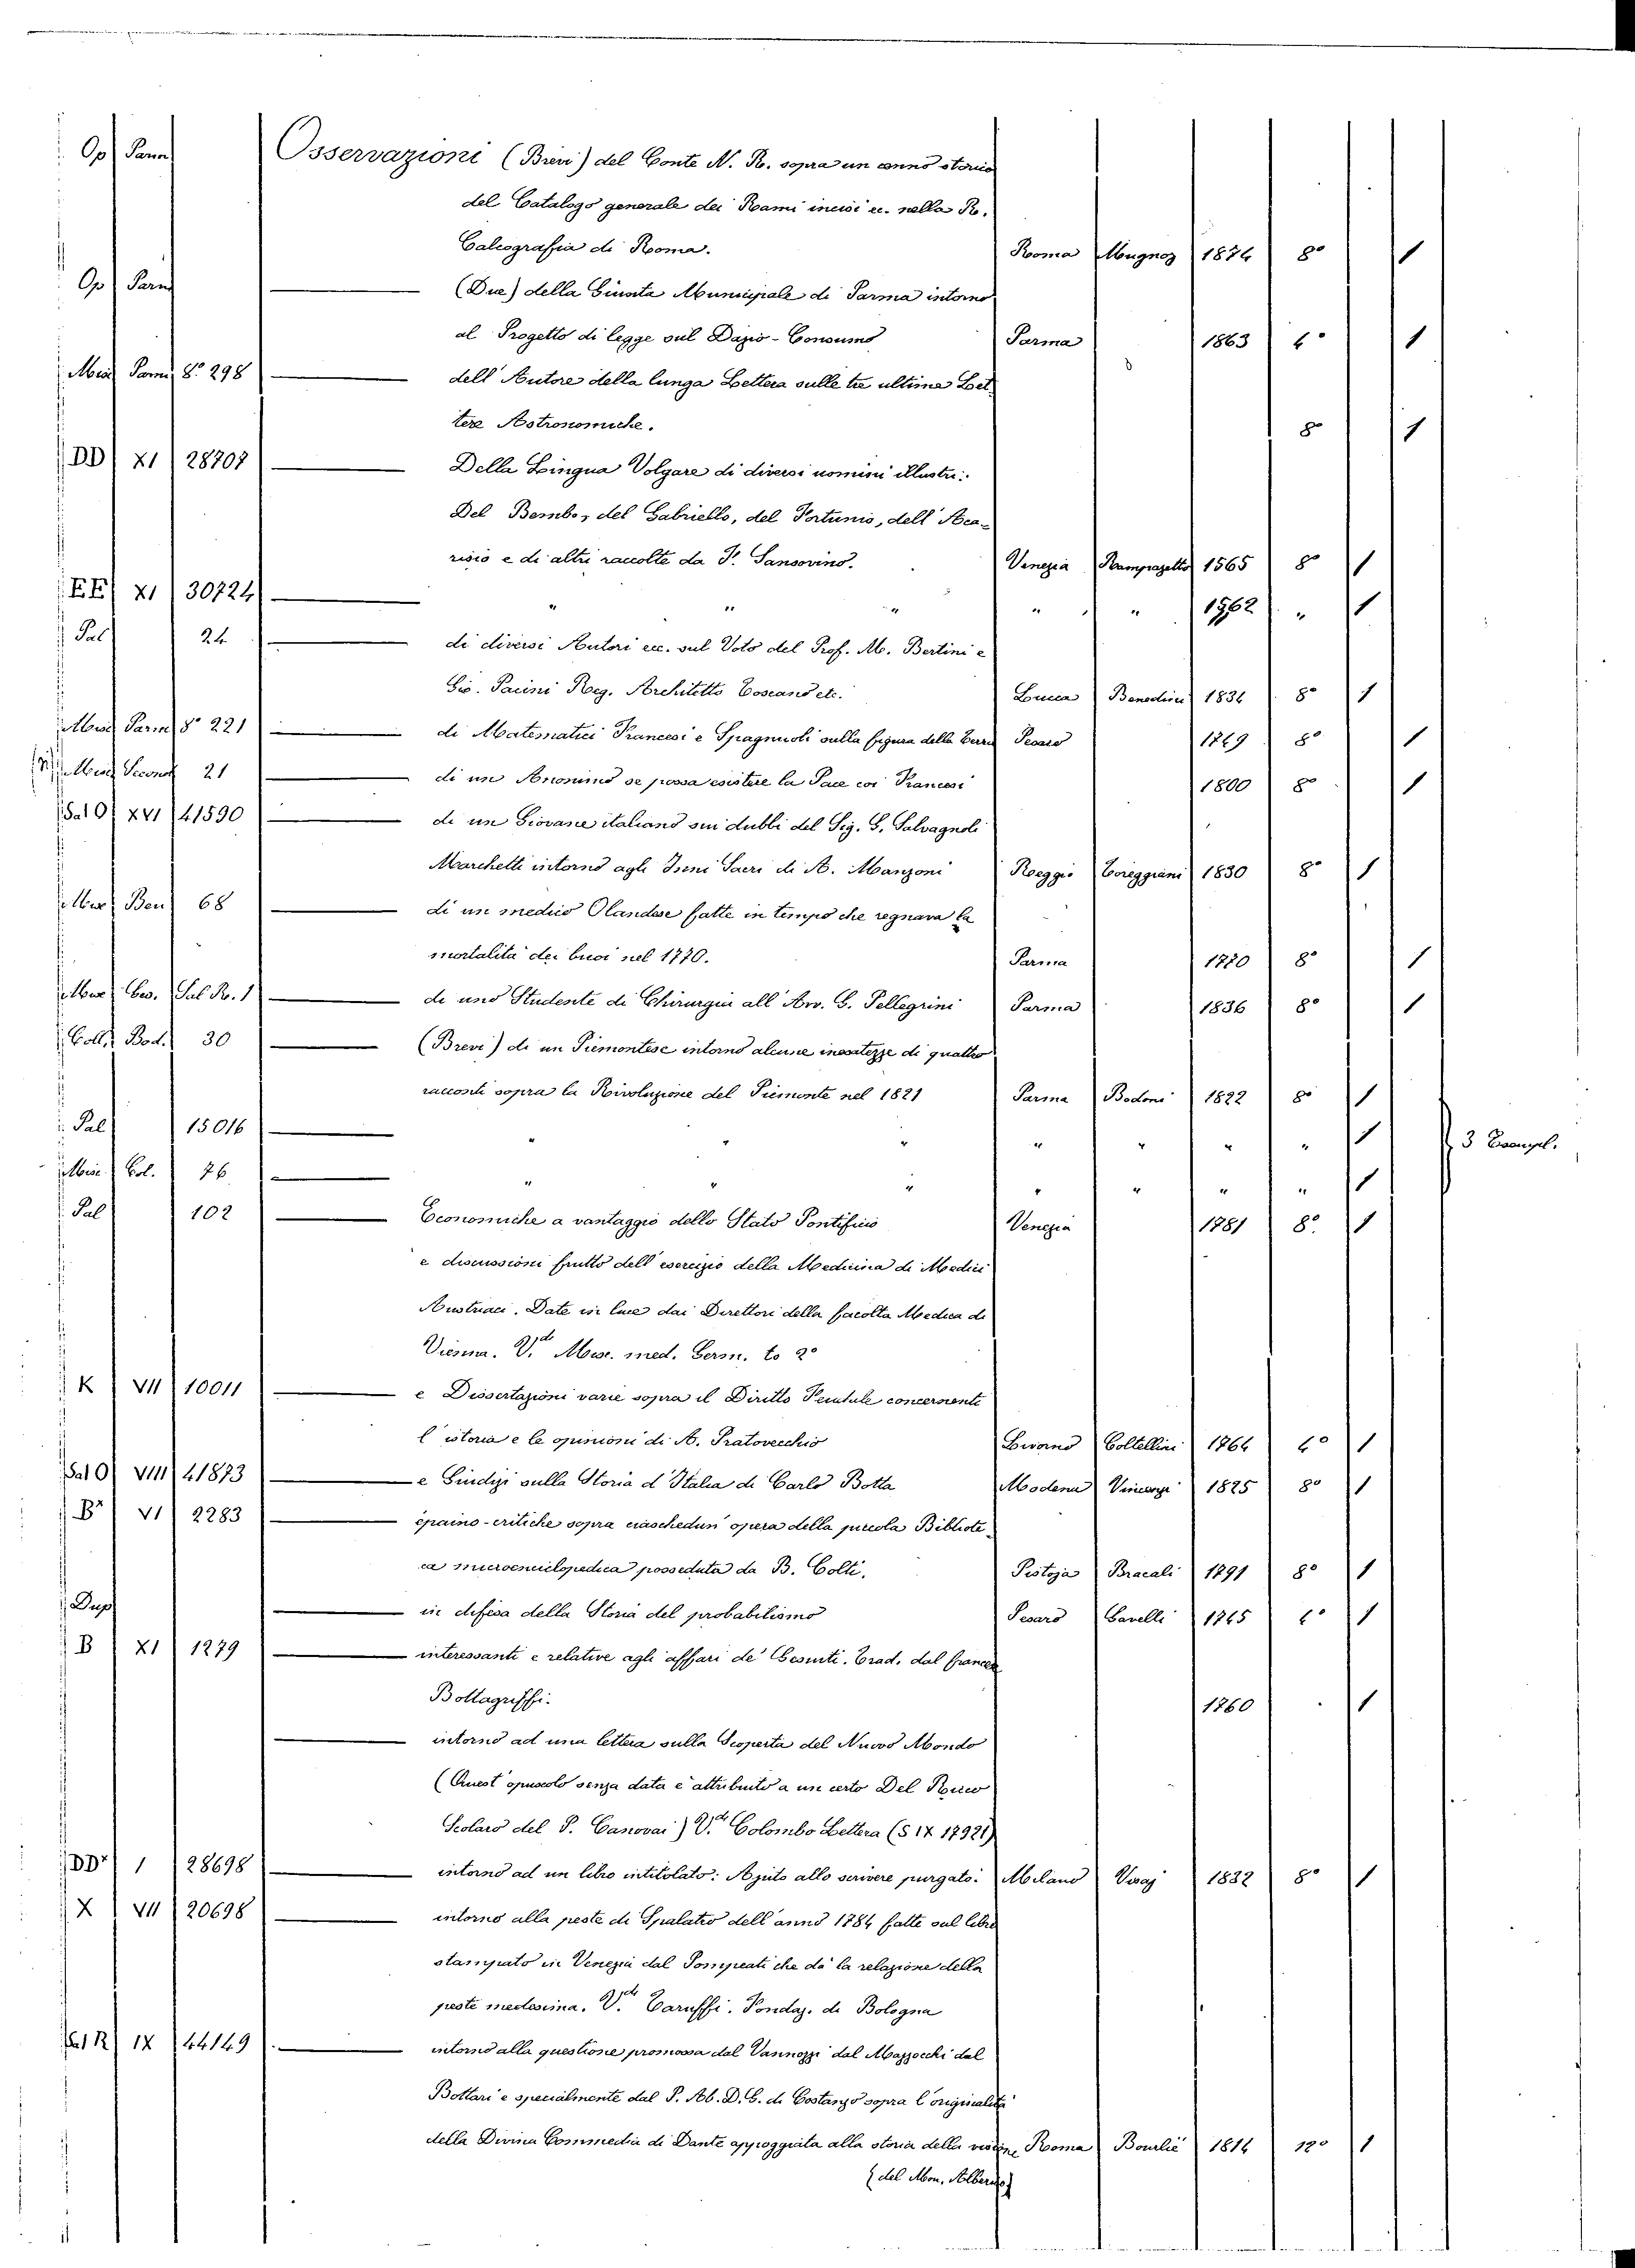 Op Parm Osservazioni (Brevi) del Conte N. R. sopra un cenno storico
del Catalogo generale dei Rami incisi ec. nella R.
Calcografia di Roma. Roma 1874 8º 1
Op Parm (Due) della Giunta Municipale di Parma intorno
al Progetto di legge sul Dazio-Consumo Parma 1863 4º 1
Misc Parm 8º 298 dell'Autore della lunga Lettera sulle tre ultime Let-
tere Astronomiche. 8º 1
DD XI 28707 Della Lingua Volgare di diversi uomini illustri:
Del Bembo, del Gabriello, del Fortunio, dell'Aca-
risio e di altri raccolte da F. Sansovino. Venezia Rampazetto 1565 8º 1
EE XI 30724 " " " " " 1562 " 1
Pal 24 di diversi Autori ecc. sul Voto del Prof. M. Bertini e
Gio. Pacini Reg. Architetto Toscano etc. Lucca Benedini 1834 8º 1
Misc Parm 8º 221 di Matematici Francesi e Spagnuoli sulla figura della Terra Pesaro 1769 8º 1
Misc Second 21 di un Anonimo se possa esistere la Pace coi Francesi 1800 8º 1
Sal O XVI 41590 di un Giovane italiano sui dubbi del Sig. G. Salvagnoli
Marchetti intorno agli Inni Sacri di A. Manzoni Reggio Toreggiani 1830 8º 1
Misc Ben 68 di un medico Olandese fatte in tempo che regnava la
mortalità dei buoi nel 1770. Parma 1770 8º 1
Misc Ces. Sal R. 1 di uno Studente di Chirurgia all'Avv. G. Pellegrini Parma 1836 8º 1
Coll. Bod. 30 (Brevi) di un Piemontese intorno alcune inesattezze di quattro
racconti sopra la Rivoluzione del Piemonte nel 1821 Parma Bodoni 1822 8º 1
Pal 15016 " " " " " " " 1 3 Esempl.
Misc. Col. 76 " " " " " " " 1
Pal 102 Economiche a vantaggio dello Stato Pontificio Venezia 1781 8º 1
e discussioni frutto dell'esercizio della Medicina di Medici
Austriaci. Date in luce dai Direttori della facolta Medica di
Vienna. V.d Misc. med. Germ. to 2º
K VII 10011 e Dissertazioni varie sopra il Diritto Feudale concernenti
l'istoria e le opinioni di A. Pratovecchio Livorno Coltellini 1764 4º 1
Sal O VIII 41873 e Giudizi sulla Storia d'Italia di Carlo Botta Modena Vincenzi 1825 8º 1
B* VI 2283 epaino-critiche sopra ciaschedun'opera della piccola Bibliote-
ca microenciclopedica posseduta da B. Colti. Pistoja Bracali 1791 8º 1
Dup in difesa della Storia del probabilismo Pesaro Gavelli 1745 4º 1
B XI 1279 interessanti e relative agli affari de' Gesuiti. Trad. dal francese
Bottagriffi. 1760 1
intorno ad una lettera sulla Scoperta del Nuovo Mondo
(Quest'opuscolo senza data è attribuito a un certo Del Ricco
Scolaro del P. Canovai) V.d Colombo Lettera (S IX 17921)
DD* 1 28698 intorno ad un libro intitolato: Ajuto allo scrivere purgato: Milano Visaj 1832 8º 1
X VII 20698 intorno alla peste di Spalatro dell'anno 1784 fatte sul libro
stampato in Venezia dal Pompeati che dà la relazione della
peste medesima. V.d Caruffi. Fondaz. di Bologna
Sal R IX 44149 intorno alla questione promossa dal Vannozzi dal Mazzocchi dal
Bottari e specialmente dal P. Ab. D. G. di Costanzo sopra l'originalità
della Divina Commedia di Dante appoggiata alla storia della visione Roma Bourlié 1814 12º 1
(del Mon. Alberico)